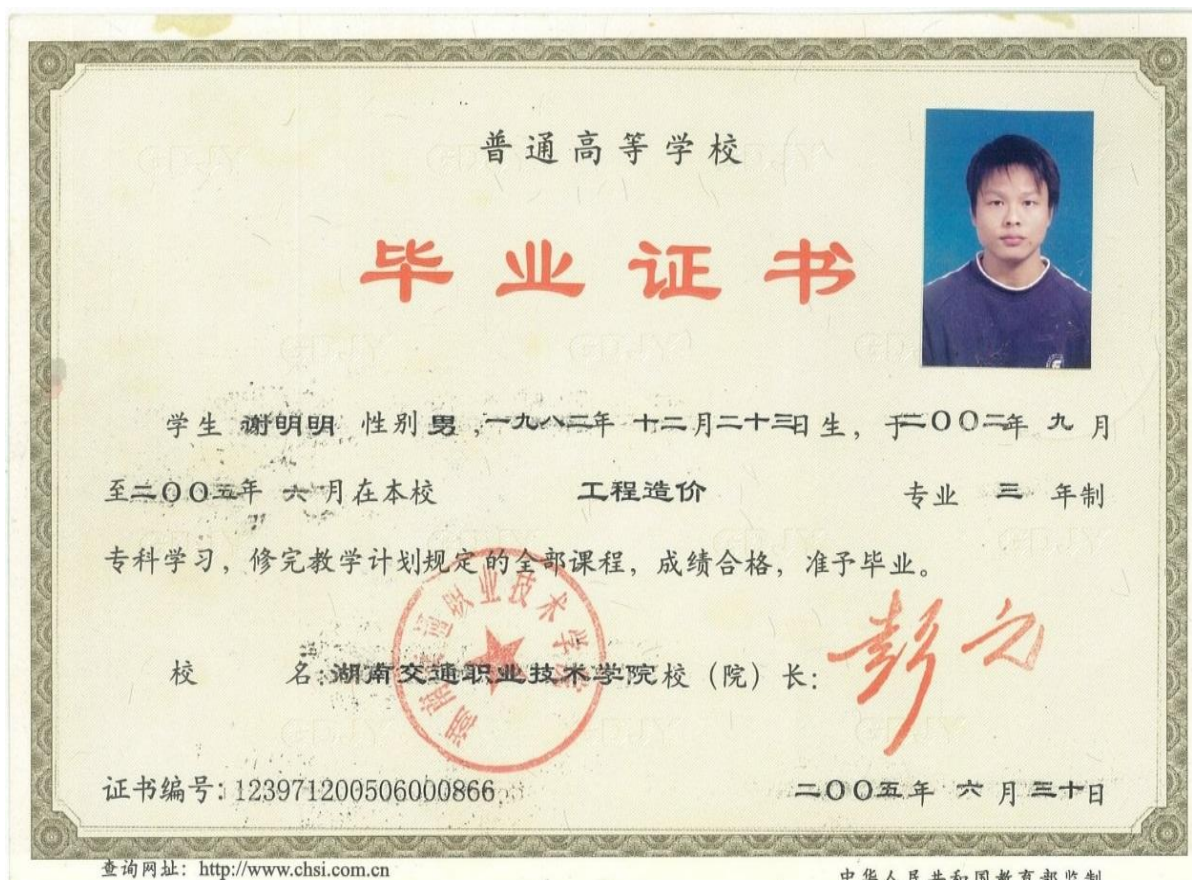 普通高等学校
毕业证书
学生 谢明明 性别 男 ,一九八二年 十二月二十三日生，于二〇〇二年 九 月
至二〇〇五年 六 月在本校 工程造价 专业 三 年制
专科学习，修完教学计划规定的全部课程，成绩合格，准予毕业。
湖南交通职业技术学院
校 名:湖南交通职业技术学院校（院）长:
证书编号: 123971200506000866
二〇〇五年 六 月三十日
查询网址: http://www.chsi.com.cn
中华人民共和国教育部监制